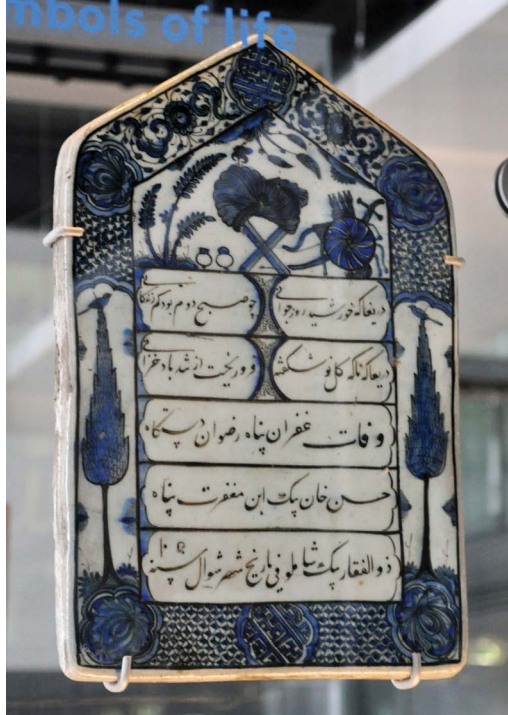 mbols of life
دریغا که خورشید روز جوانی
چو صبح دوم بود کم زندگانی
دریغا که ناگه گل نوشکفته
فرو ریخت از تندباد خزانی
وفات غفران پناه رضوان دستگاه
حسن خان بیک ابن مغفرت پناه
ذوالفقار بیک شاملو فی تاریخ شهر شوال سنه